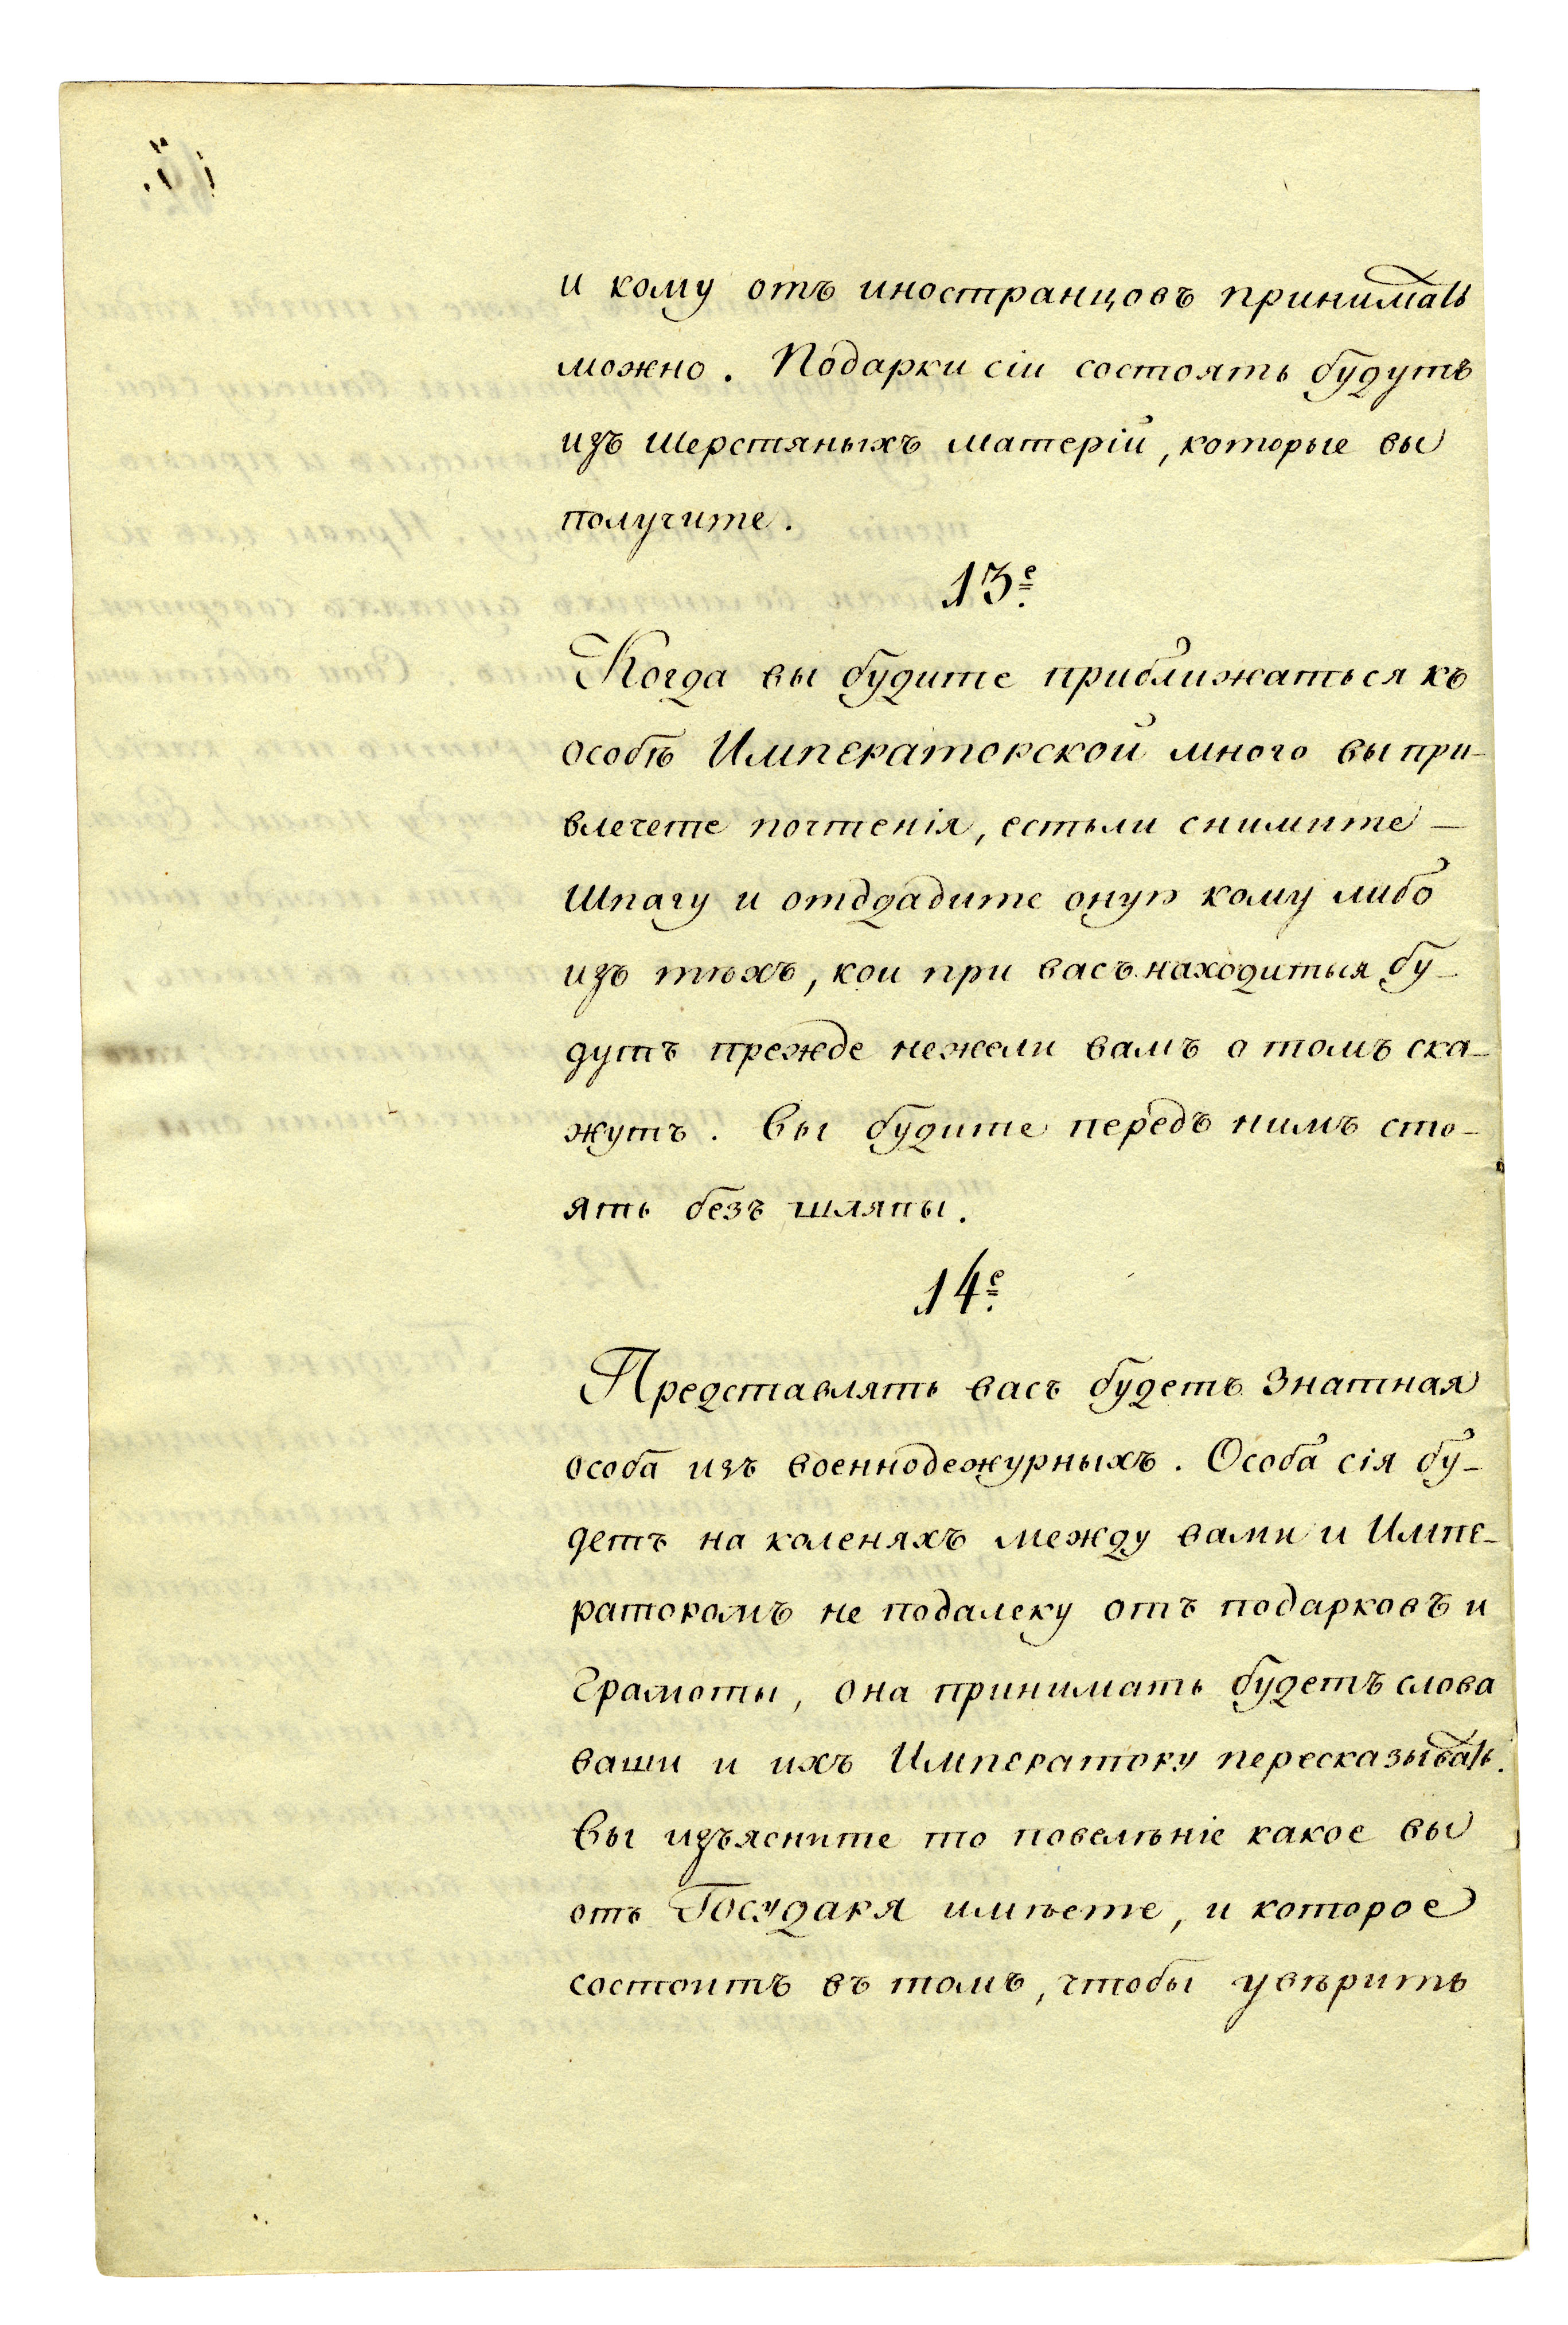 и кому отъ иностранцовъ принимать
можно. Подарки сіи состоять будутъ
изъ шерстяныхъ матерій, которые вы
получите.
13е
Когда вы будите приближаться къ
особѣ Императорской много вы при-
влечете почтенія, естьли снимите —
Шпагу и отддадите оную кому либо
изъ тѣхъ, кои при васъ находиться бу-
дутъ прежде нежели вамъ о томъ ска-
жутъ. Вы будите передъ нимъ сто-
ять безъ шляпы.
14е
Представлять васъ будетъ Знатная
особа изъ военнодежурныхъ. Особа сія бу-
детъ на коленяхъ между вами и Импе-
раторомъ не подалеку отъ подарковъ и
Грамоты, она принимать будетъ слова
ваши и ихъ Императору пересказывать.
Вы изъясните то повелѣніе какое вы
отъ Государя имѣете, и которое
состоитъ въ томъ, чтобы увѣрить